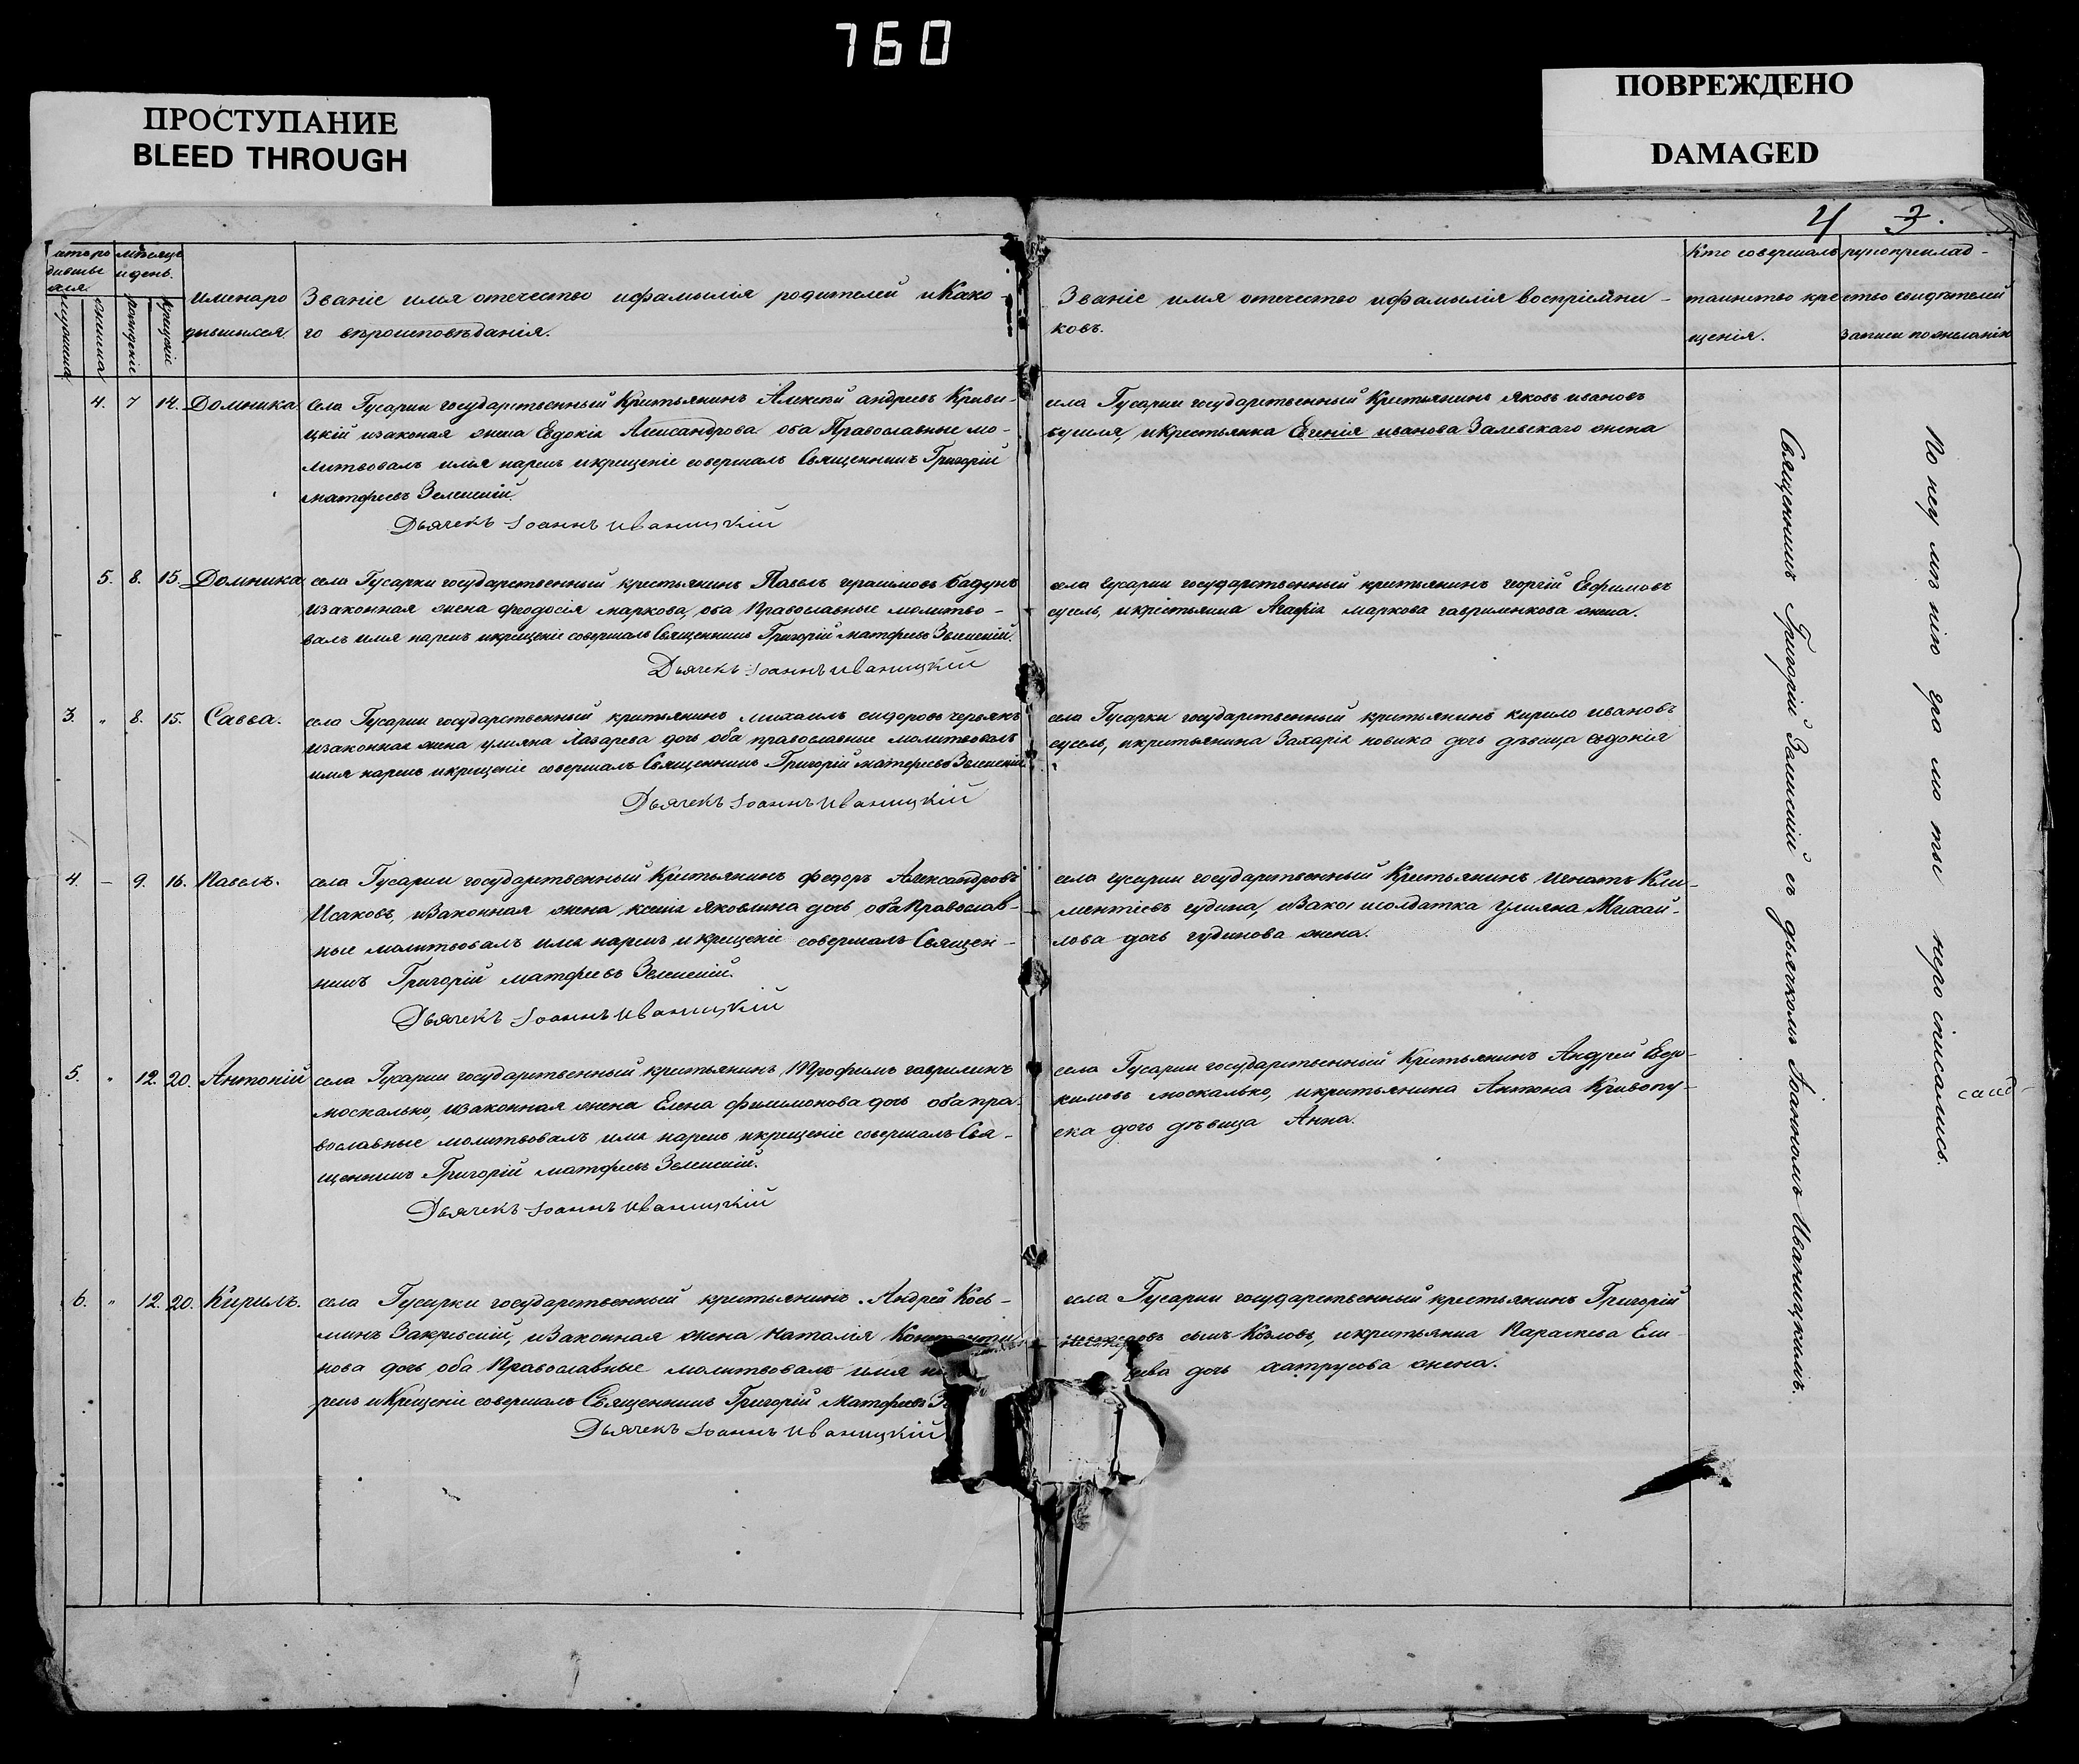 760
ПРОСТУПАНИЕ
BLEED THROUGH
ПОВРЕЖДЕНО
DAMAGED
4 3.
мѣсяцъ
и день.
имена ро
дывшихся.
Званіе имя отечество ифамылія родителей икако-
го вѣроисповѣданія.
Званіе имя отечество ифамылія воспріемни-
ковъ.
Кто совершалъ
таинство кре
щенія.
рукоприклад-
ство свидѣтелей
записи по желанію
4. 7 14. Домника. села Гусарки государственный Крестьянинъ Алексѣй андреевъ Криви-
цкій изаконая жена Евдокія Александрова оба Православные мо-
литвовалъ имя нарекъ икрещеніе совершалъ Священникъ Григорій
матфеевъ Зеленскій.
Дьячекъ Іоаннъ Иваницкій
села Гусарки государственный Крестьянинъ Яковъ ивановъ
икрестьянка Евгенія иванова Залевскаго жена
5. 8. 15. Домника села Гусарки государственный крестьянинъ Павелъ герасимовъ бадунъ
изаконная жена феодосія маркова, оба Православные молитво-
валъ имя нарекъ икрещеніе совершалъ Священникъ Григорій матфеевъ Зеленскій.
Дьячекъ Іоаннъ Иваницкій
села Гусарки государственный крестьянинъ георгій Евфимовъ
сусль, икрестьянка Агафія маркова гаврименкова жена.
3. " 8. 15. Савва. села Гусарки государственный крестьянинъ михаилъ сидоровъ червякъ
изаконная жена улияна Лазарева дочь оба православные молитвовалъ
имя нарекъ икрещеніе совершалъ Священникъ Григорій матфеевъ Зеленскій.
Дьячекъ Іоаннъ Иваницкій
села Гусарки государственный крестьянинъ кирило ивановъ
сусль, икрестьянина Захарія новика дочь дѣвица евдокія
4. – 9. 16. Павелъ. села Гусарки государственный Крестьянинъ федоръ Александровъ
Исаковъ, изаконная жена ксенія Яковлина дочь оба Православ-
ные молитвовалъ имя нарекъ и крещеніе совершалъ Священ-
никъ Григорій матфеевъ Зеленскій.
Дьячекъ Іоаннъ Иваницкій
села гусарки государственный Крестьянинъ Игнатъ Кли-
ментіевъ гудина, исолдатка улияна Михай-
лова дочь гудинова жена.
5. " 12. 20. Антоній села Гусарки государственный крестьянинъ Трофимъ гаврилинъ
москалько, изаконная жена Елена филимонова дочь оба пра-
вославные молитвовалъ имя нарекъ икрещеніе совершалъ Свя-
щенникъ Григорій матфеевъ Зеленскій.
Дьячекъ Іоаннъ Иваницкій
села Гусарки государственній Крестьянинъ Андрей Евдо-
кимовъ москалько, икрестьянина Антона Кривопу-
ска дочь дѣвица Анна.
6. " 12. 20. Кирилъ. села Гусарки государственный крестьянинъ Андрей Кось-
минъ Закревскій, изаконная жена Наталія Константи
нова дочь, оба Православные молитвовалъ имя на
рекъ иКрещеніе совершалъ Священникъ Григорій Матфеевъ З
Дьячекъ Іоаннъ Иваницкій
села Гусарки государственный крестьянинъ Григорій
сынъ Козловъ, икрестьянка Параскева Ели
дочь жена.
Священникъ Григорій Зеленскій съ дьячкомъ Іоанномъ Иваницкимъ.
По неумѣнію грамоты нерописались.